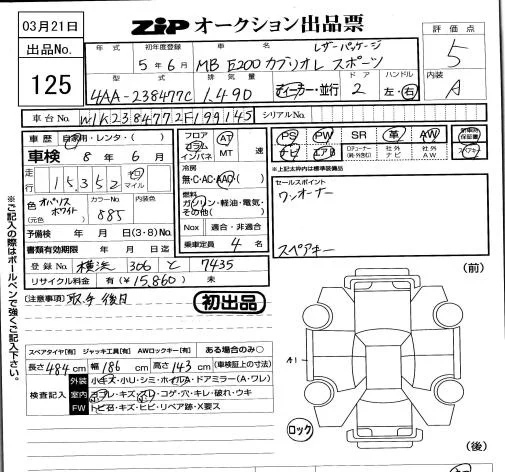 03月21日
出品No.
125
ZIP オークション出品票
評価点
5
内装
A
年式 初年度登録 車名 レザーパッケージ
5年6月 MB E200 カブリオレ スポーツ
型式 排気量 ドア ハンドル
4AA-238477C 1.490 ディーラー・並行 2 左・右
車台No. W1K2384772F199145 シリアルNo.
車歴 自家用・レンタ・( )
車検 8年 6月
走行 15,352 キロ マイル
色 (元色) オパリスホワイト カラーNo. 885 内装色
予備検 年 月 日(3・8)No.
書類有効期限 年 月 日迄
登録No. 横浜 306 と 7435
リサイクル料金 有(¥15,860) 未
フロア コラム インパネ AT MT 速
冷房 無・C・AC・AAC
燃料 ガソリン・軽油・電気・その他( )
Nox 適合・非適合
乗車定員 4 名
PS PW SR 革 AW 新車時保証書
ナビ エアB 社外ナビ 社外AW
※上記太枠内は標準装備品
セールスポイント
ワンオーナー
スペアキー
注意事項 取手後日
初出品
スペアタイヤ[有] ジャッキ工具[有] AWロックキー[有] ある場合のみ○
長さ 484cm 幅 186cm 高さ 143cm (車検証上の寸法)
検査記入
外装 小キズ・小U・シミ・ホイルA・ドアミラー(A・ワレ)
室内 ヨゴレ・キズ・スレ・コゲ・穴・キレ・破れ・ウキ
FW トビ石・キズ・ヒビ・リペア跡・X要ス
※ご記入の際はボールペンで強くご記入下さい。
(前)
A1
ロック
(後)